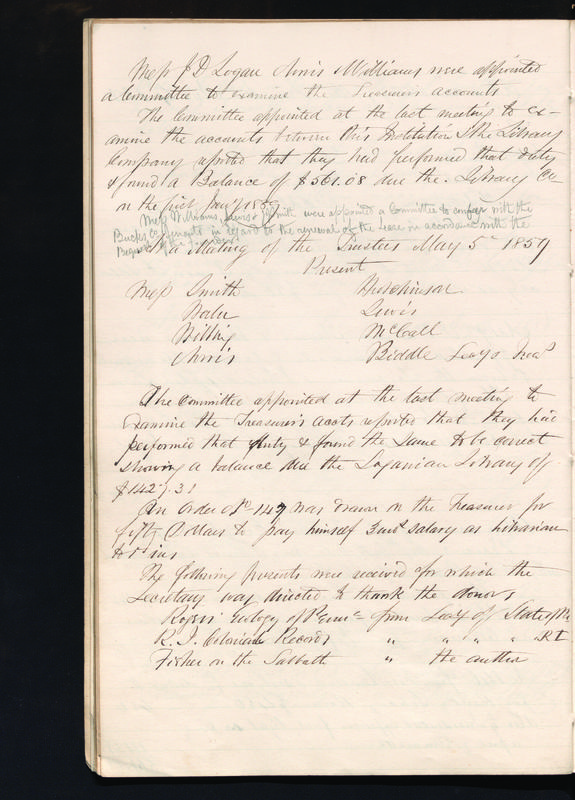 Mess J D Logan Norris & Williams were appointed
a Committee to examine the Treasurers accounts
The Committee appointed at the last meeting to ex-
amine the accounts between this Institution & the Library
Company reported that they had performed that duty
& found a Balance of $561.08 due the Library Co
on the first Jany 1859
Mess Williams, Lewis & Smith were appointed a Committee to confer with the
Bucks Co in regard to the renewal of the Lease in accordance with the
Request of the
At a Meeting of the Trustees May 5th 1859
Present
Mess Smith Hutchinson
Lewis
McCall
Norris Biddle Secy & Treas
The Committee appointed at the last meeting to
Examine the Treasurer's accots reported that they had
performed that duty & found the same to be correct
showing a balance due the Loganian Library of
$1427.31
An Order No 147 was drawn on the Treasurer for
fifty Dollars to pay himself 3 mos salary as Librarian
to 1st ins
The following presents were received for which the
Secretary was directed to thank the donors
Rogers' Geology of Penna from Secy of State of Pa
R. I. Colonial Records " " " " " R I
Fisher on the Sabbath " the author